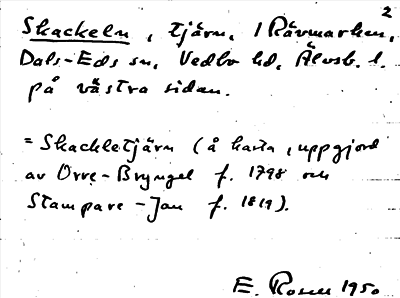 2
Skackeln, tjärn, i Rävmarken,
Dals-Eds sn, Vedbo hd, Älvsb. l.
på västra sidan.
= Skackletjärn (å karta, uppgjord
av Orre-Bryngel f. 1798 och
Stampare-Jan f. 1819).
E. Rosell 1950